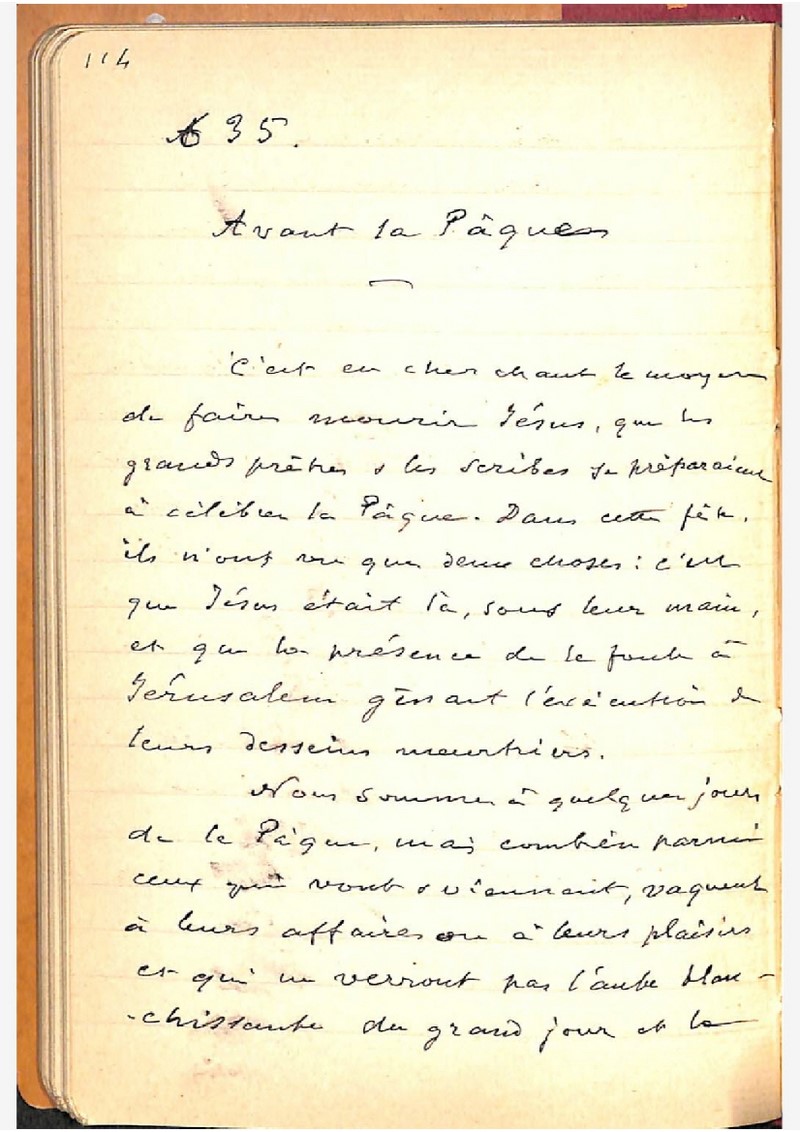 114
35.
Avant la Pâques
C'est en cherchant le moyen
de faire mourir Jésus, que les
grands prêtres & les scribes se préparaient
à célébrer la Pâque. Dans cette fête,
ils n'ont vu que deux choses : c'est
que Jésus était là, sous leur main,
et que la présence de la foule à
Jérusalem gênait l'exécution de
leurs desseins meurtriers.
Nous sommes à quelques jours
de la Pâque, mais combien parmi
ceux qui vont & viennent, vaquent
à leurs affaires ou à leurs plaisirs
et qui ne verront pas l'aube blan-
-chissante du grand jour et la